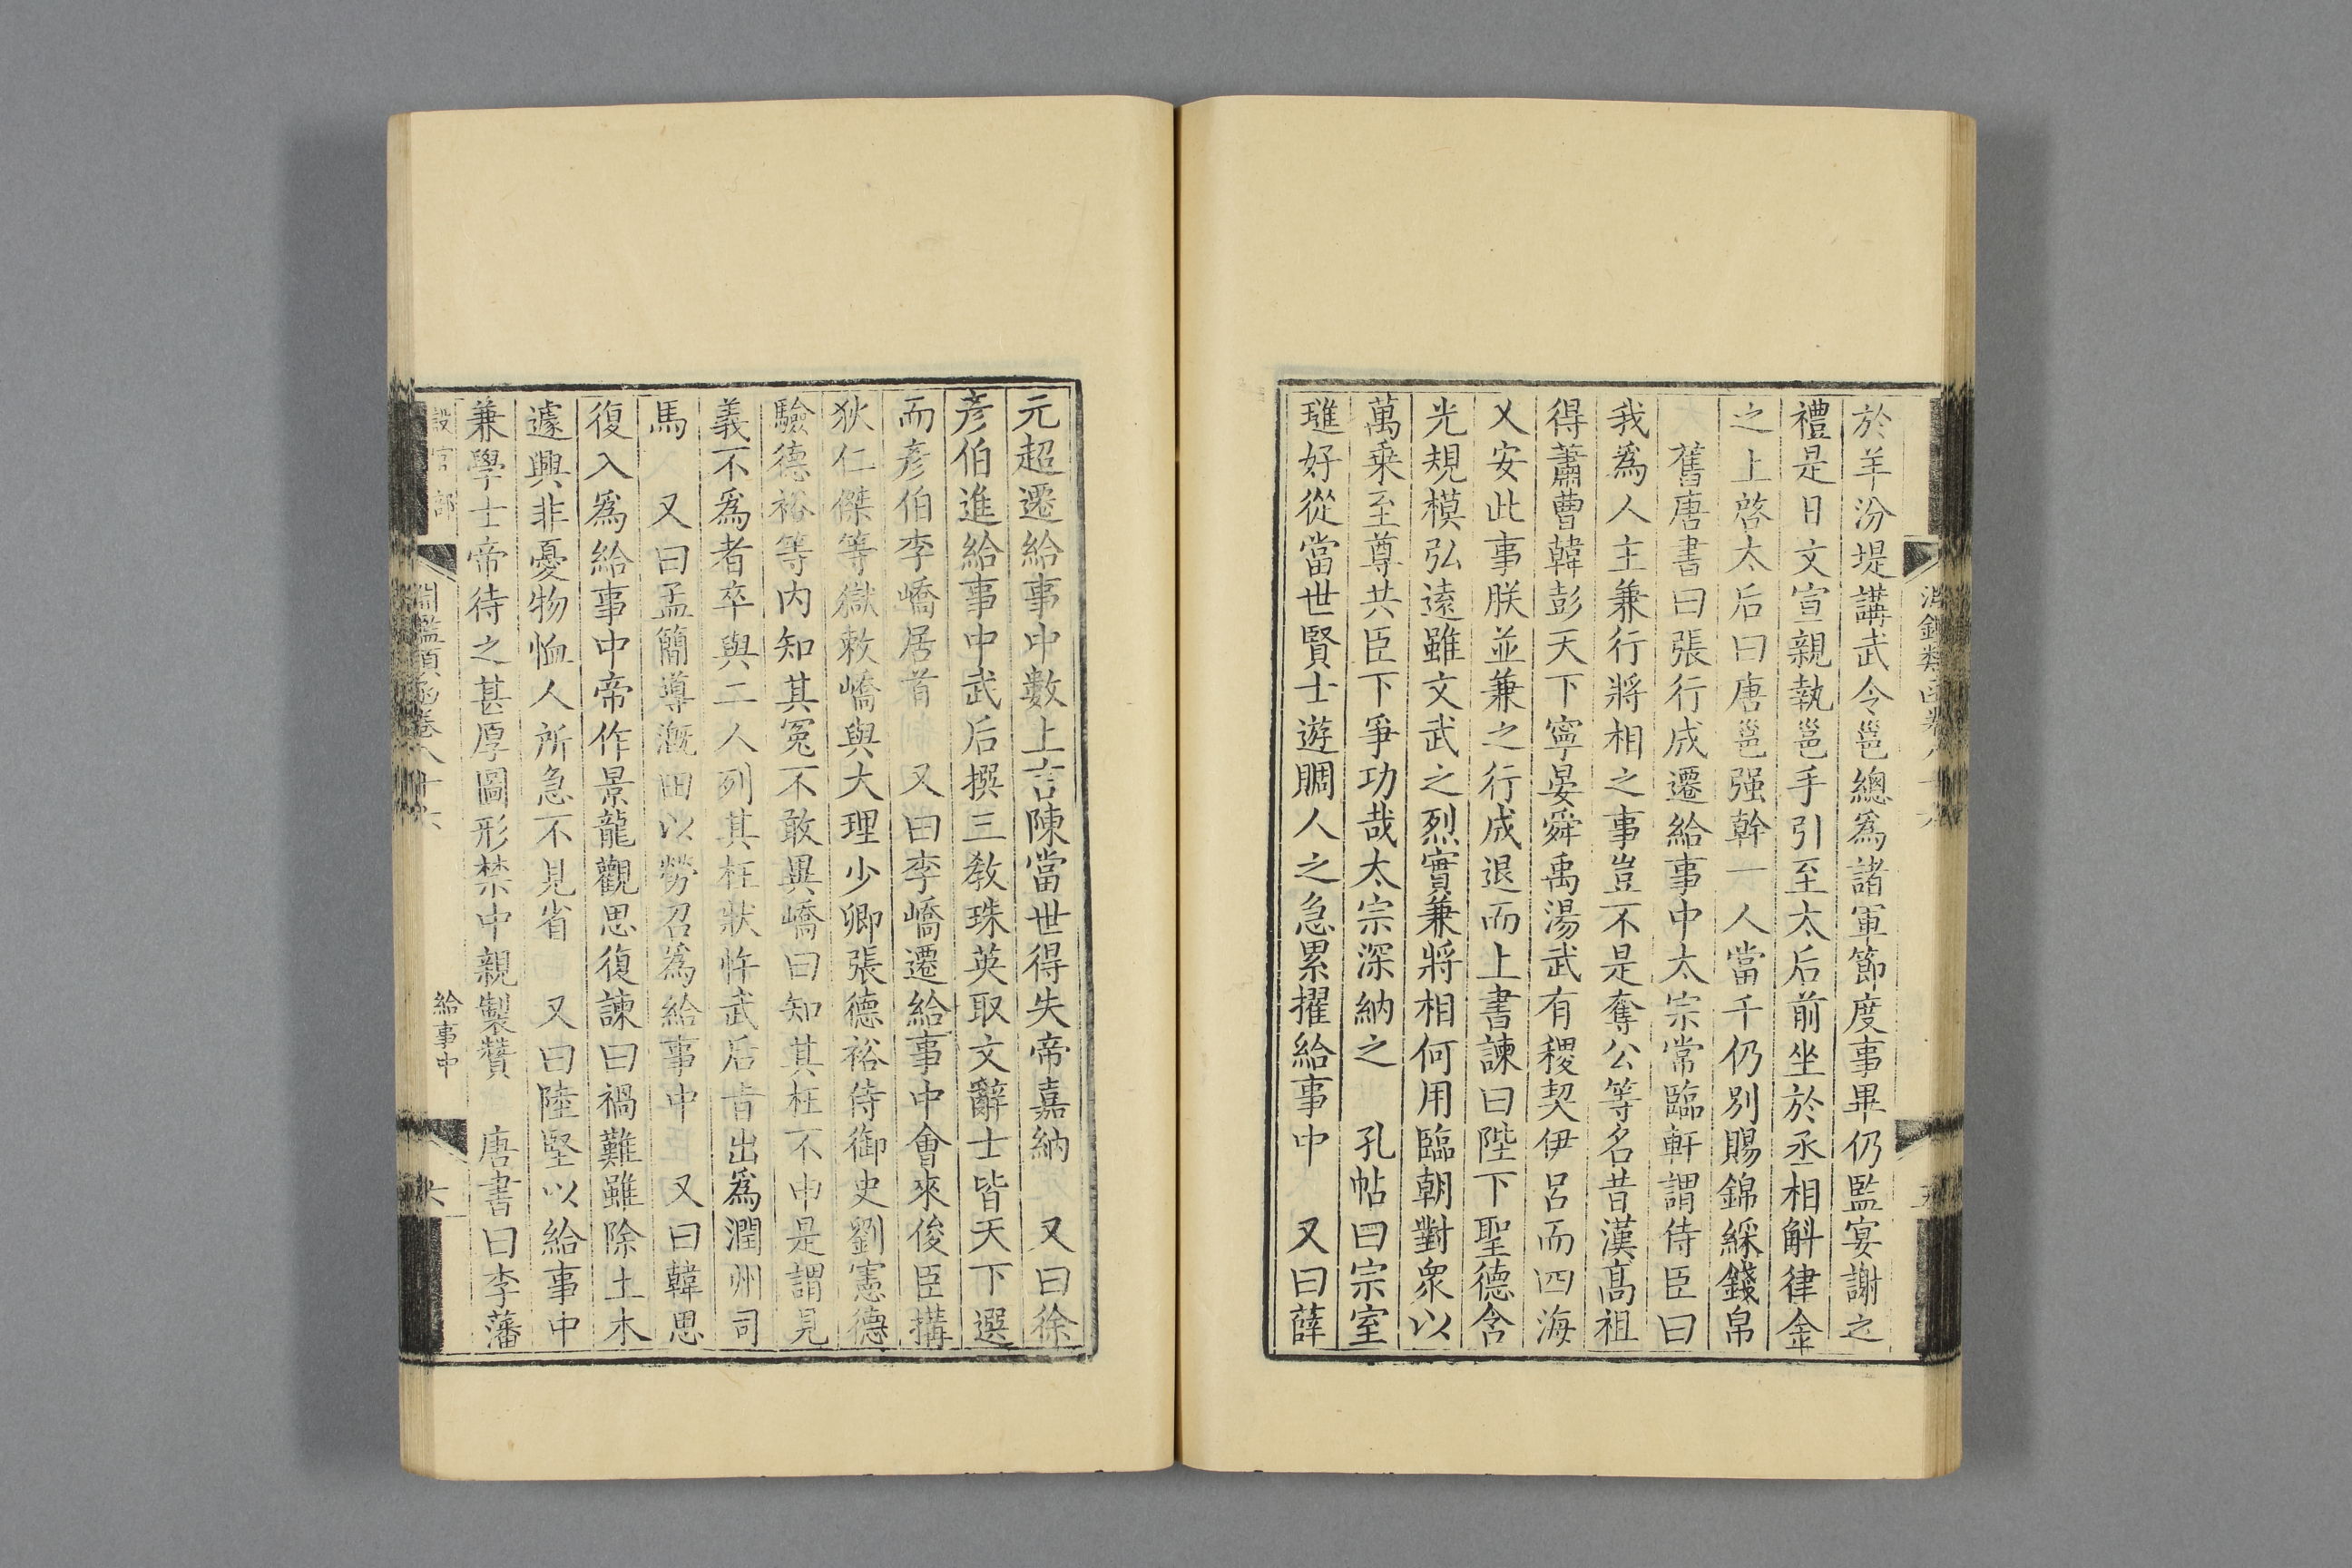 於羊汾堤講武令邕總爲諸軍節度事畢仍監宴謝之
禮是日文宣親執邕手引至太后前坐於丞相斛律金
之上啓太后曰唐邕强幹一人當千仍別賜錦綵錢帛
舊唐書曰張行成遷給事中太宗常臨軒謂侍臣曰
我爲人主兼行將相之事豈不是奪公等名昔漢高祖
得蕭曹韓彭天下寧晏舜禹湯武有稷契伊呂而四海
乂安此事朕並兼之行成退而上書諫曰陛下聖德含
光規模弘遠雖文武之烈實兼將相何用臨朝對衆以
萬乗至尊共臣下爭功哉太宗深納之　孔帖曰宗室
璡好從當世賢士遊賙人之急累擢給事中　又曰薛
元超遷給事中數上言陳當世得失帝嘉納　又曰徐
彦伯進給事中武后撰三敎珠英取文辭士皆天下選
而彦伯李嶠居首　又曰李嶠遷給事中會來俊臣搆
狄仁傑等獄敕嶠與大理少卿張德裕侍御史劉憲德
驗德裕等內知其寃不敢異嶠曰知其枉不申是謂見
義不爲者卒與二人列其枉狀忤武后旨出爲潤州司
馬　又曰孟簡導漑田以勞召爲給事中　又曰韓思
復入爲給事中帝作景龍觀思復諫曰禍難雖除土木
遽興非憂物恤人所急不見省　又曰陸堅以給事中
兼學士帝待之甚厚圖形禁中親製贊　唐書曰李藩
設官部
淵鑑類函卷八十六
給事中
六